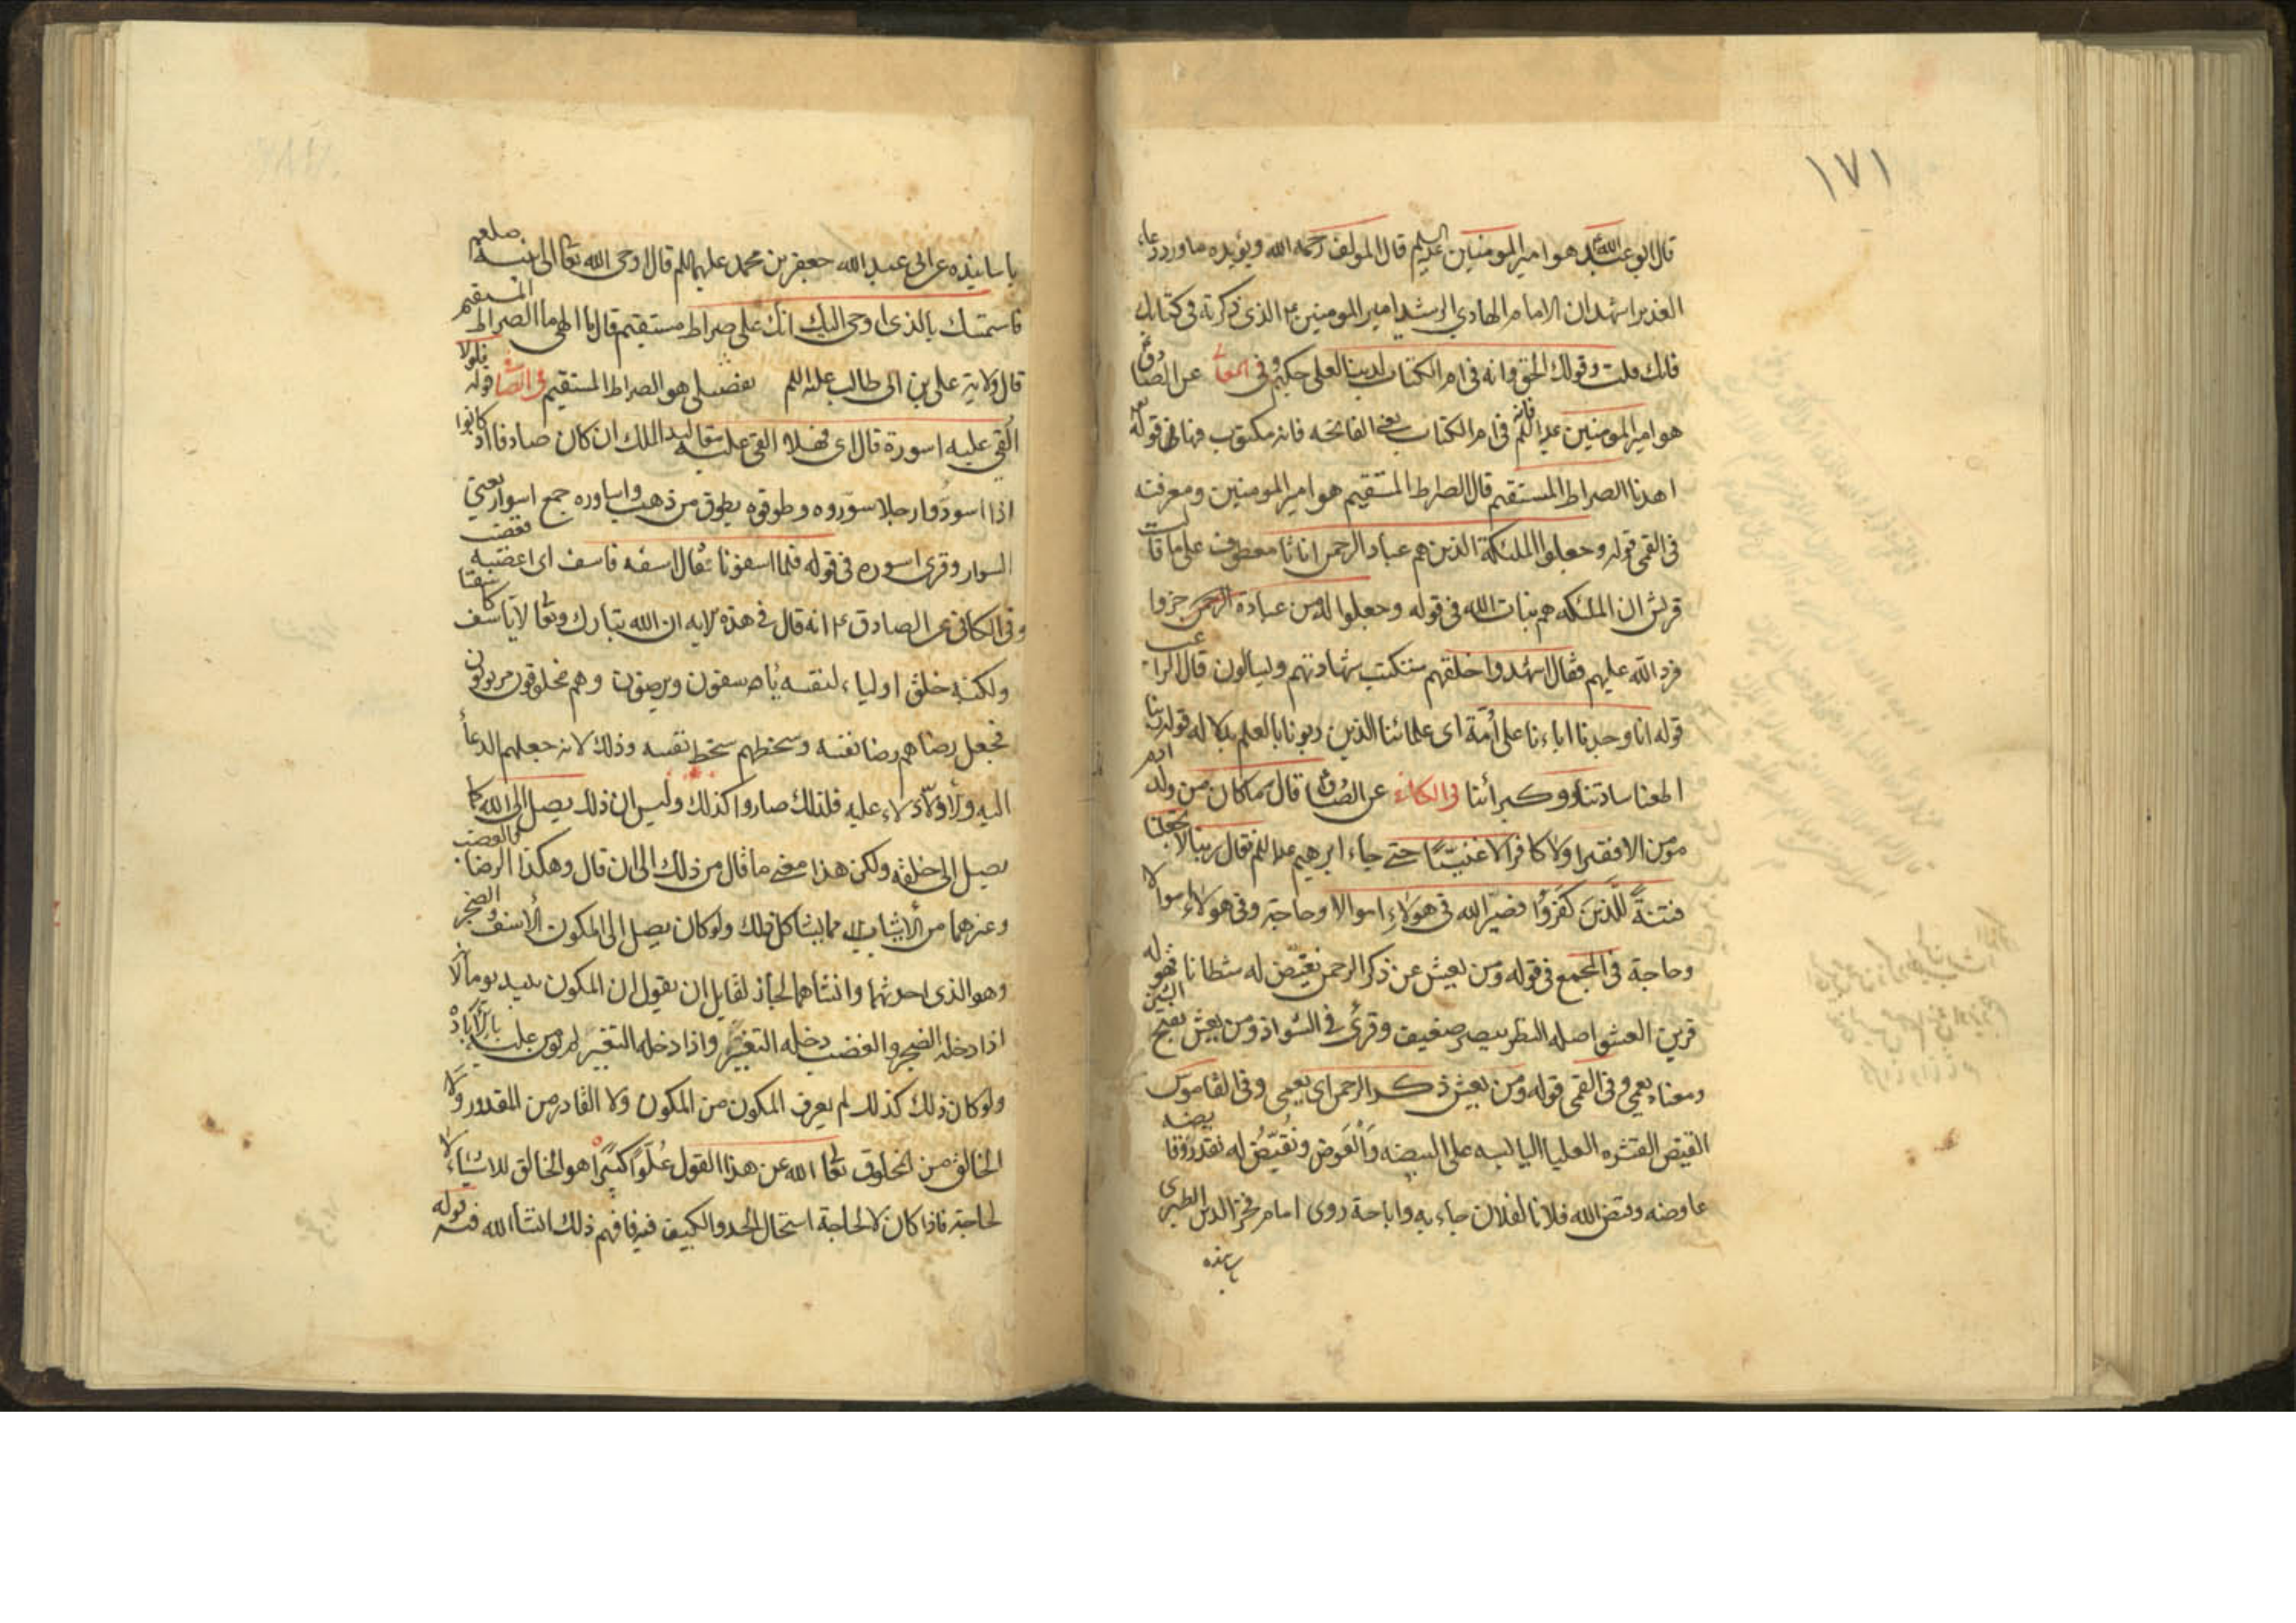 ١٧١
قال ابو عبد الله هو امير المومنين عليه السلم قال المولف رحمه الله ويؤيده ما ورد دعاء
الغدير اشهد ان الامام الهادي الرشيد امير المومنين ع الذى ذكرته فى كتابك
فانك قلت وقولك الحق وانه فى ام الكتاب لدينا لعلى حكيم وفى المعا عن الصادق
هو امير المومنين عليه السلم فى ام الكتاب يعنى الفاتحه فانه مكتوب فيها فى قوله
اهدنا الصراط المستقيم قال الصراط المستقيم هو امير المومنين ومعرفته
فى القمى قوله وجعلوا الملئكة الذين هم عباد الرحمن اناثا معطوف على ما قالت
قريش ان الملئكه هم بنات الله فى قوله وجعلوا له من عباده جزوا
فرد الله عليهم فقال اشهدوا خلقهم ستكتب شهادتهم ويسالون قال
قوله انا وجدنا اباءنا على أمة اى علمائنا الذين بالعلم قوله ربنا
اطعنا سادتنا وكبرائنا فى الكافى عن الصادق قال ما كان من ولد ادم
مومن الا فقيرا ولا كافر الا غنيّا حتى جاء ابرهيم عليه السلم فقال ربنا لا تجعلنا
فتنةً للّذين كفروا فصيّر الله فى هولاء اموالا وحاجة وفى هولاء اموالا
وحاجة فى المجمع فى قوله ومن يعش عن ذكر الرحمن نقيّض له شيطانا فهو له
قرين العشو اصله النظر ببصر ضعيف وقرئ فى الشواذ ومن يعش بفتح الشين
ومعناه يعمى وفى القمى قوله ومن يعش ذكر الرحمن اى يعمى وفى القاموس
القيض القشره العليا اليابسه على البيضه والعوض ونُقَيّضُ له نقدر
عاوضه وقيض الله فلانا لفلان جاءبه واباحة روى امام فخر الدين الطبرى
باسانيده
باسانيده عن ابى عبد الله جعفر بن محمد عليهما السلم قال اوحى الله تعا الى نبيه صلعم
فاستمسك بالذى اوحى اليك انك على صراط مستقيم قال الهى ما الصراط المستقيم
قال ولاية على بن ابى طالب عليه السلم فعلى هو الصراط المستقيم فى قوله فلولا
القى عليه اسورة قال اى فهلا القى عليه مقاليد الملك ان كان صادقا اذ كانوا
اذا اسودوا رجلا سوّروه وطوقوه بطوق من ذهب واساوره جمع اسوار يعنى
السوار وقرئ اسوره فى قوله فلما اسفونا يقال اسفه فاسف اى اغضبه فغضب
وفى الكافى عن الصادق ع انه قال فى هذه الايه ان الله تبارك وتعا لا ياسف كاسفنا
ولكنه خلق اولياء لنفسه ياسفون ويرضون وهم مخلوقون مربوبون
فجعل رضاهم رضا نفسه وسخطهم سخط نفسه وذلك لانه جعلهم الدعاء
اليه والادلاء عليه فلذلك صاروا كذلك وليس ان ذلك يصل الى الله كما
يصل الى خلقه ولكن هذا معنى ما قال من ذلك الى ان قال وهكذا الرضا والغضب
وغيرهما من الاشياء مما يشاكل ذلك ولو كان يصل الى المكون الاسف والضجر
وهو الذى احدثهما وانشاهما لجاز لقايل ان يقول ان المكون يبيد يوما
اذا دخله الضجر والغضب دخله التغيّر واذا دخله التغيّر لم يومن عليه بالابادة
ولو كان ذلك كذلك لم يعرف المكون من المكون ولا القادر من المقدور ولا
الخالق من المخلوق تعا الله عن هذا القول عُلوًا كبيرًا هو الخالق للاشياء لا
لحاجة فاذا كان لا لحاجة استحال الحد والكيف فيه فافهم ذلك انشاء الله قوله